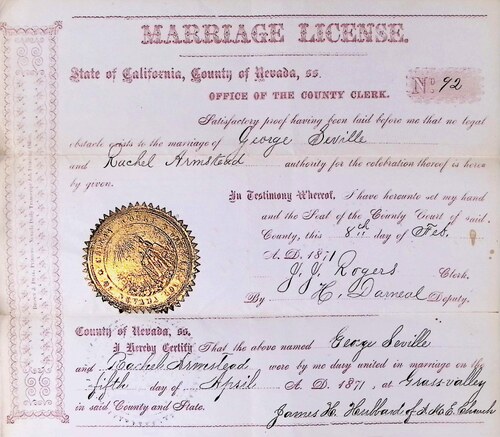 MARRIAGE LICENSE.
State of California, County of Nevada, ss.
No. 92
OFFICE OF THE COUNTY CLERK.
Satisfactory proof having been laid before me that no legal
obstacle exists to the marriage of George Seville
and Rachel Armstead authority for the celebration thereof is here
by given.
In Testimony Whereof, I have hereunto set my hand
and the Seal of the County Court of said
County, this 8th day of Feb.
A. D. 1871
J. J. Rogers Clerk.
By H. Darneal Deputy.
County of Nevada, ss.
I Hereby Certify That the above named George Seville
and Rachel Armstead were by me duly united in marriage on the
fifth day of April A. D. 1871, at Grass valley
in said County and State.
James H. Hubbard of A. M. E. Church